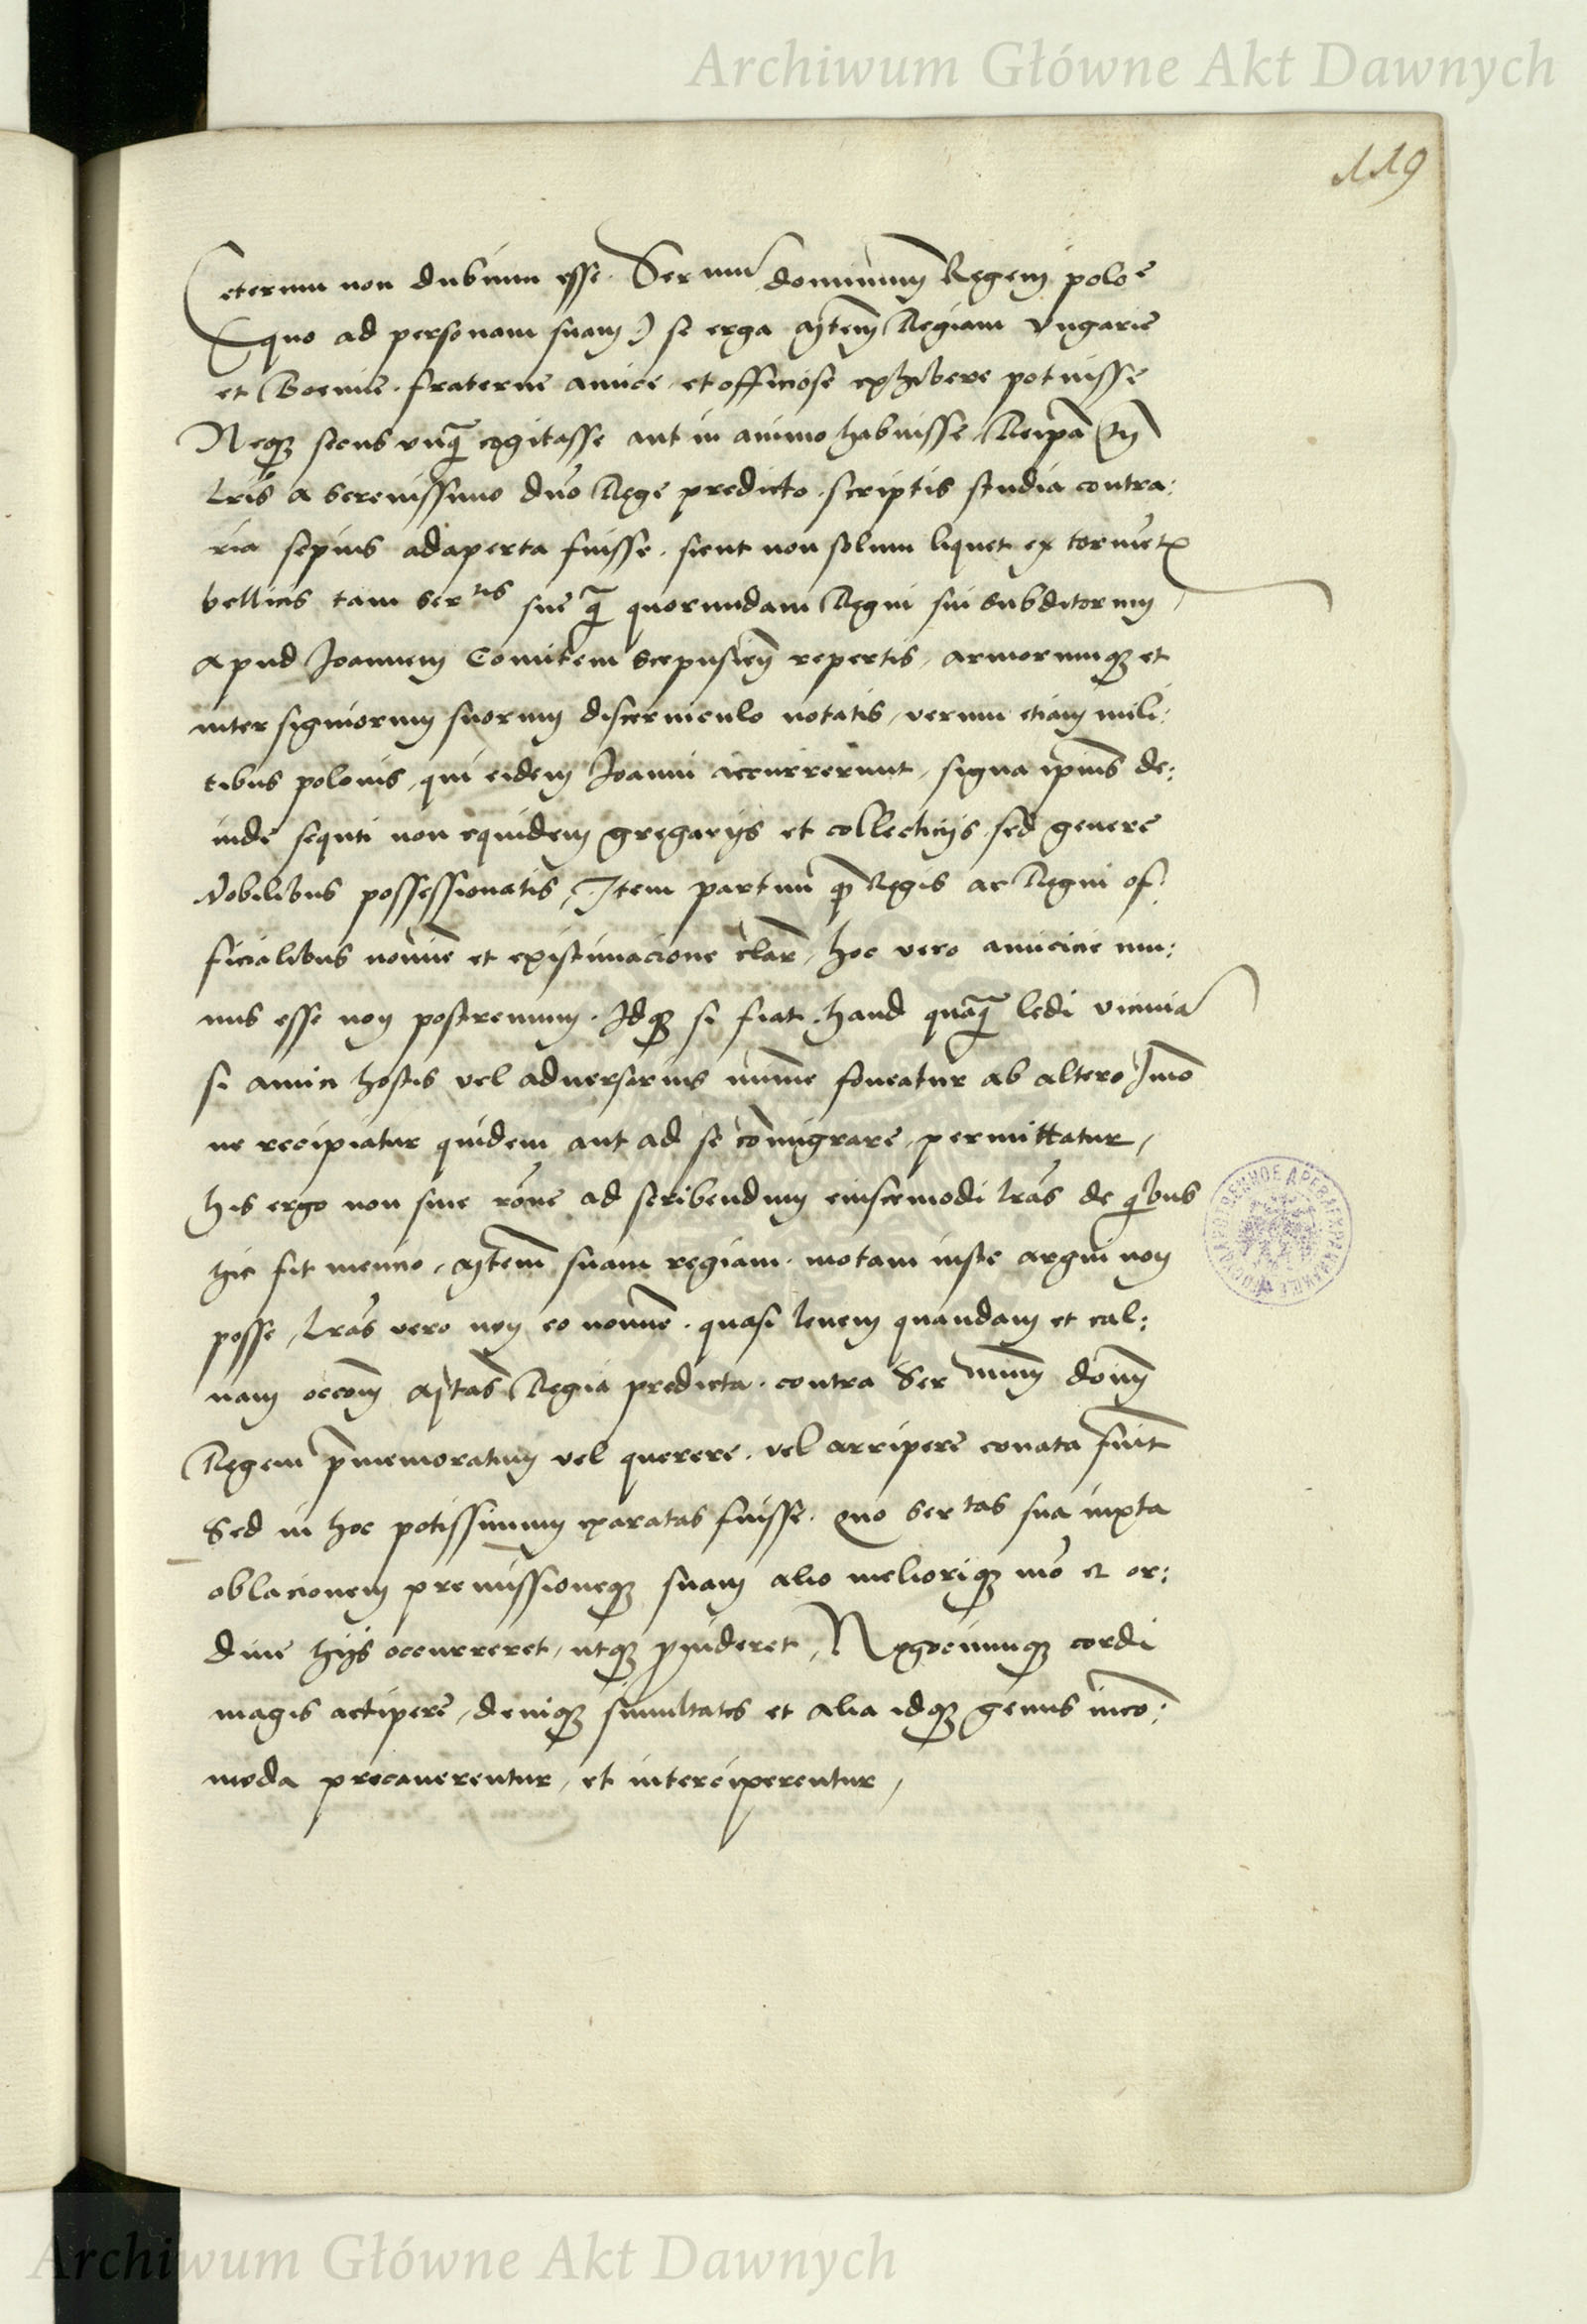 Archiwum Główne Akt Dawnych
119
Ceterum non dubium esse. Ser mu dominum Regem polo e
(quo ad personam suam) se erga Mtem Regiam Vngarie
et Boemie. fraterne amice et officiose exhibere potuisse
Neque secus vnq cogitasse aut in animo habuisse. Reipa
lris a serenissimo dno Rege predicto. scriptis studia contra:
ria sepius adaperta fuisse. sicut non solum liquet ex torment
bellicis tam ser tis sue q quorundam Regni sui subditorum
apud Joannem Comitem scepusien repertis, armorumque et
intersigniorum suorum discerniculo notatis, verum etiam mili:
tibus polonis, qui eidem Joanni accurrerunt, signa ipius de:
inde sequti non equidem gregarijs et collecticijs. sed genere
Nobilibus possessionatis, Item partim Regis ac Regni of:
ficialibus nomine et existimacione clar, hoc vero amicicie mu:
nus esse non postremum. Idque si fiat. haud quaq ledi vicinia
si amici hostis vel aduersarius minime foueatur ab altero Imo
ne recipiatur quidem aut ad se comigrare, permittatur,
his ergo non sine rone ad scribendum eiuscemodi lras de quibus
hic fit mencio, Mtem suam regiam. motam iuste argui non
posse, lras vero non eo nomine. quasi leuem quandam et cal:
uam occom Mtas Regia predicta. contra Ser mum dom
Regem prememoratum vel querere. vel arripere conata fuit
Sed in hoc potissimum exaratas fuisse. quo ser tas sua iuxta
oblacionem premissioneque suam alio meliorique mo et or:
dine hijs occurreret, utque prouideret, Negociumque cordi
magis acciperet, denique simultates et alia idque genus inco:
moda precauerentur, et interciperentur,
Archiwum Główne Akt Dawnych